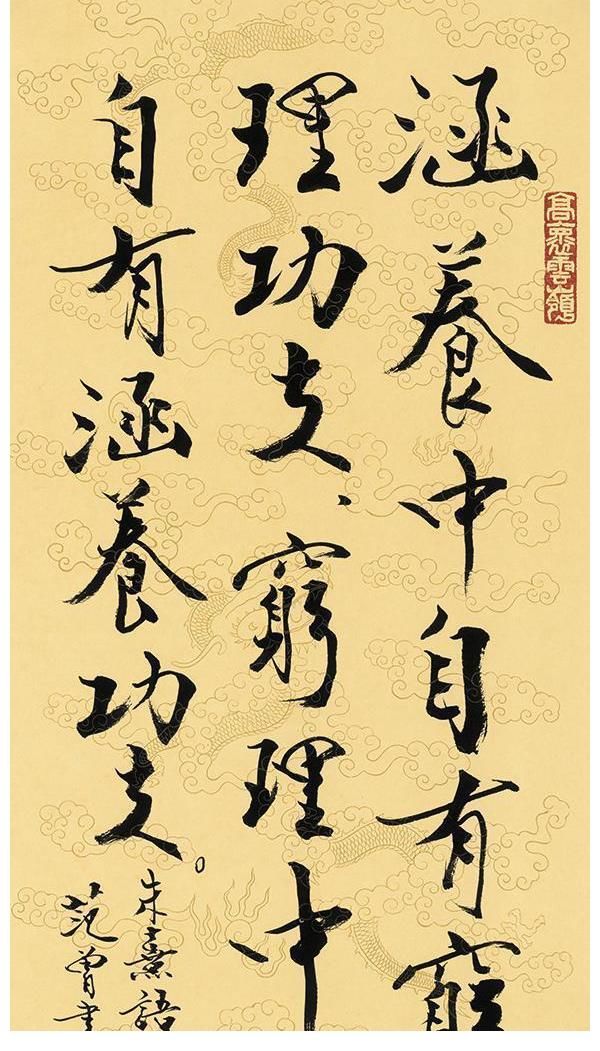 涵養中自有窮
理功夫、窮理中
自有涵養功夫。
朱熹語
范曾書